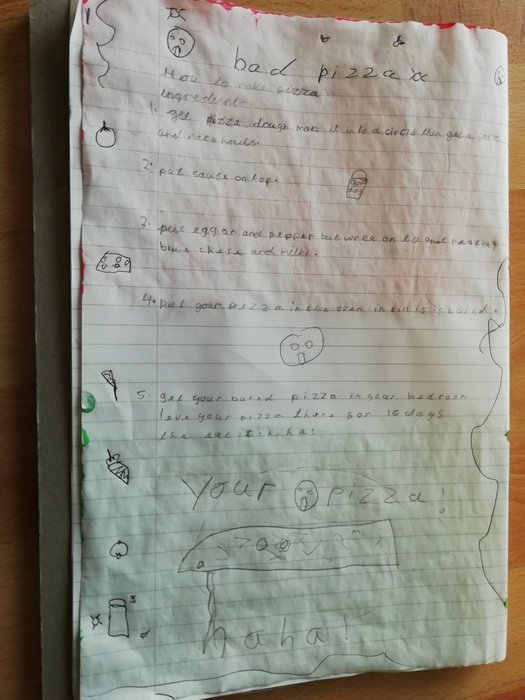 bad pizza
How to make pizza
ingredients
1. get pizza dough make it into a circle then get a
and make houls.
2. put sause on top.
3. put egg on and pepper but weee on top and
blue chese and milk.
4. put your pizza in the oven in till it is burnd.
5. get your burnd pizza in your bedroom
leve your pizza there for 16 days
the eat it. haha!
your pizza!
haha!